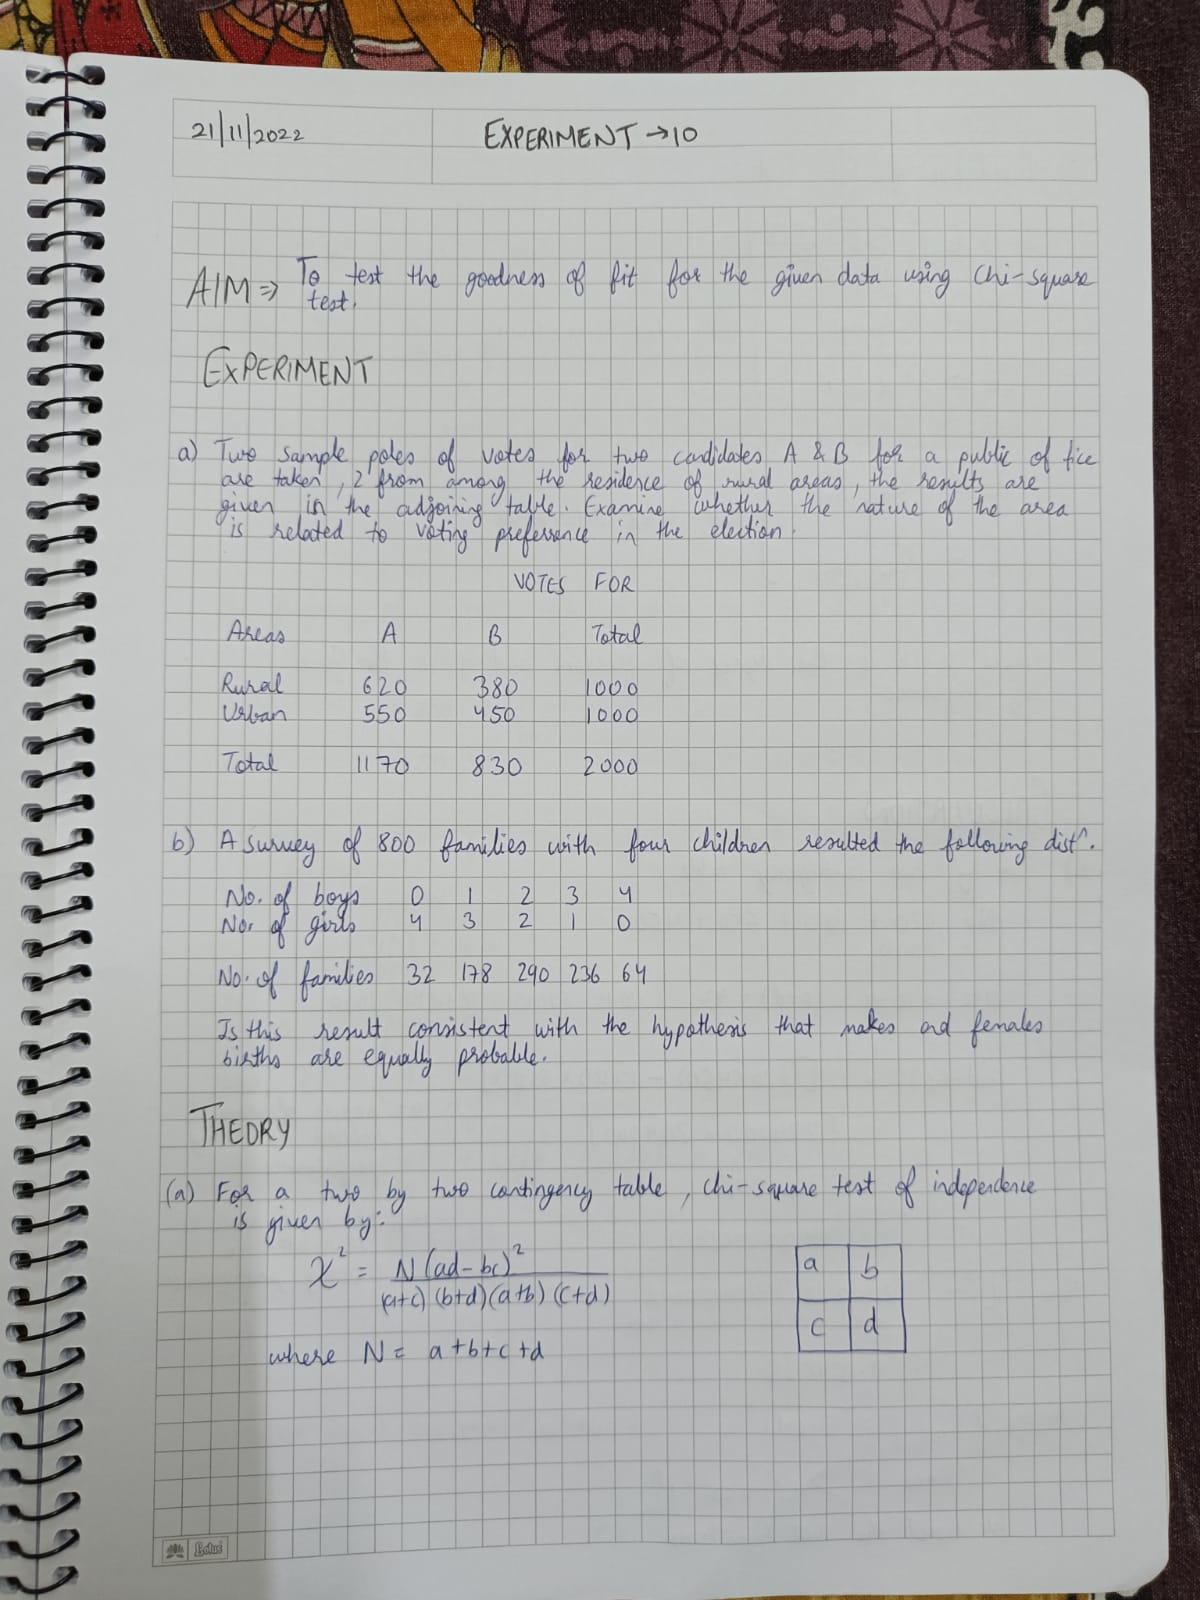 21/11/2022
EXPERIMENT → 10
AIM ⇒ To test the goodness of fit for the given data using Chi-square
test.
EXPERIMENT
a) Two sample poles of votes for two candidates A & B for a public of fice
are taken, 2 from among the residence of rural areas, the results are
given in the adjoining table. Examine whether the nature of the area
is related to voting preferrence in the election.
VOTES FOR
Areas A B Total
Rural 620 380 1000
Urban 550 450 1000
Total 1170 830 2000
b) A survey of 800 families with four children resulted the following distⁿ.
No. of boys 0 1 2 3 4
No. of girls 4 3 2 1 0
No. of families 32 178 290 236 64
Is this result consistent with the hypothesis that makes and females
births are equally probable.
THEORY
(a) For a two by two contingency table, chi-square test of independence
is given by:-
χ² = N(ad-bc)² / (a+c)(b+d)(a+b)(c+d)
a b
c d
where N = a+b+c+d
Lotus